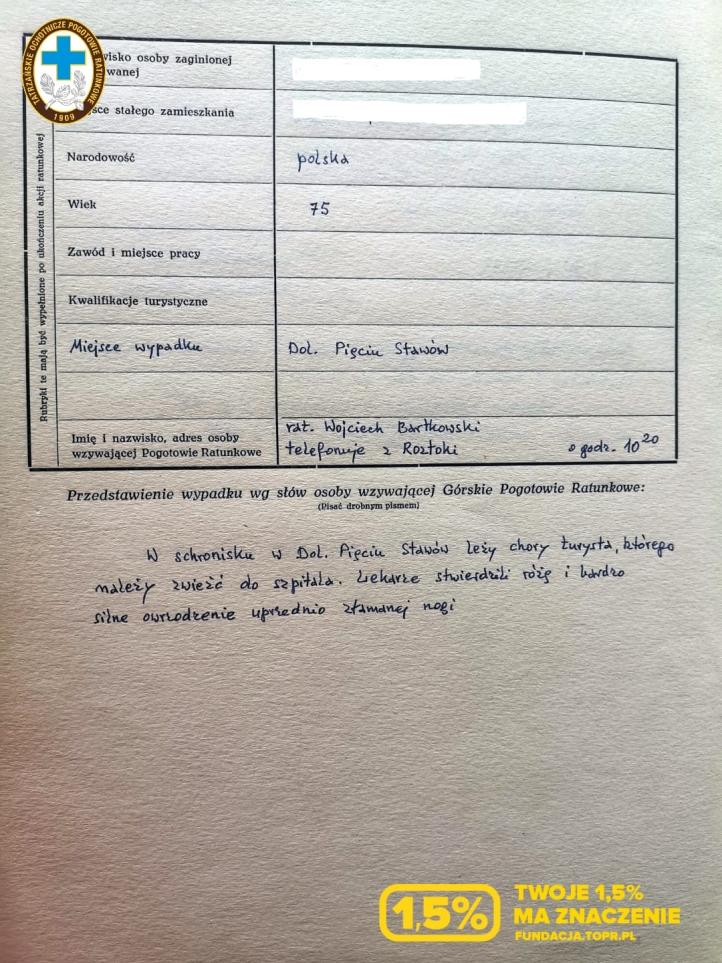 TATRZAŃSKIE OCHOTNICZE POGOTOWIE RATUNKOWE
1909
Rubryki te mają być wypełnione po ukończeniu akcji ratunkowej
wisko osoby zaginionej
wanej
sce stałego zamieszkania
Narodowość polska
Wiek 75
Zawód i miejsce pracy
Kwalifikacje turystyczne
Miejsce wypadku Dol. Pięciu Stawów
Imię i nazwisko, adres osoby
wzywającej Pogotowie Ratunkowe
rat. Wojciech Bartkowski
telefonuje z Roztoki o godz. 10²⁰
Przedstawienie wypadku wg słów osoby wzywającej Górskie Pogotowie Ratunkowe:
(Pisać drobnym pismem)
W schronisku w Dol. Pięciu Stawów leży chory turysta, którego
należy zwieźć do szpitala. Lekarze stwierdzili różę i bardzo
silne owrzodzenie uprzednio złamanej nogi
1,5%
TWOJE 1,5%
MA ZNACZENIE
FUNDACJA.TOPR.PL